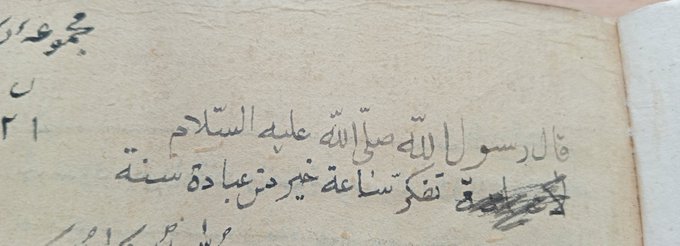 مجموعه
ل
٢١
قال رسول الله صلّى الله عليه السّلام
تفكر ساعة خير من عبادة سنة